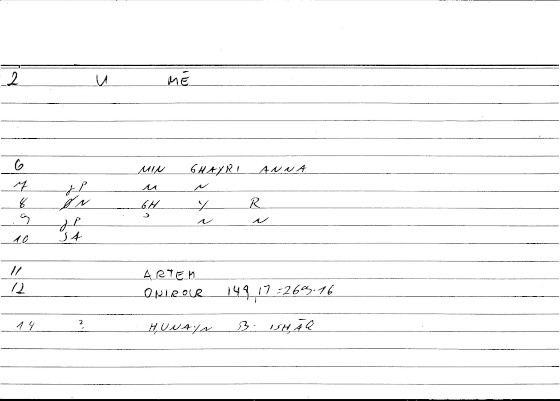 2 U MĒ
6 MIN GHAYRI ANNA
7 JP M N
8 ØN GH Y R
9 JP ʾ N N
10 JA
11 ARTEM
12 ONIROCR 149,17=269.16
14 ? ḤUNAYN B. ISḤĀQ